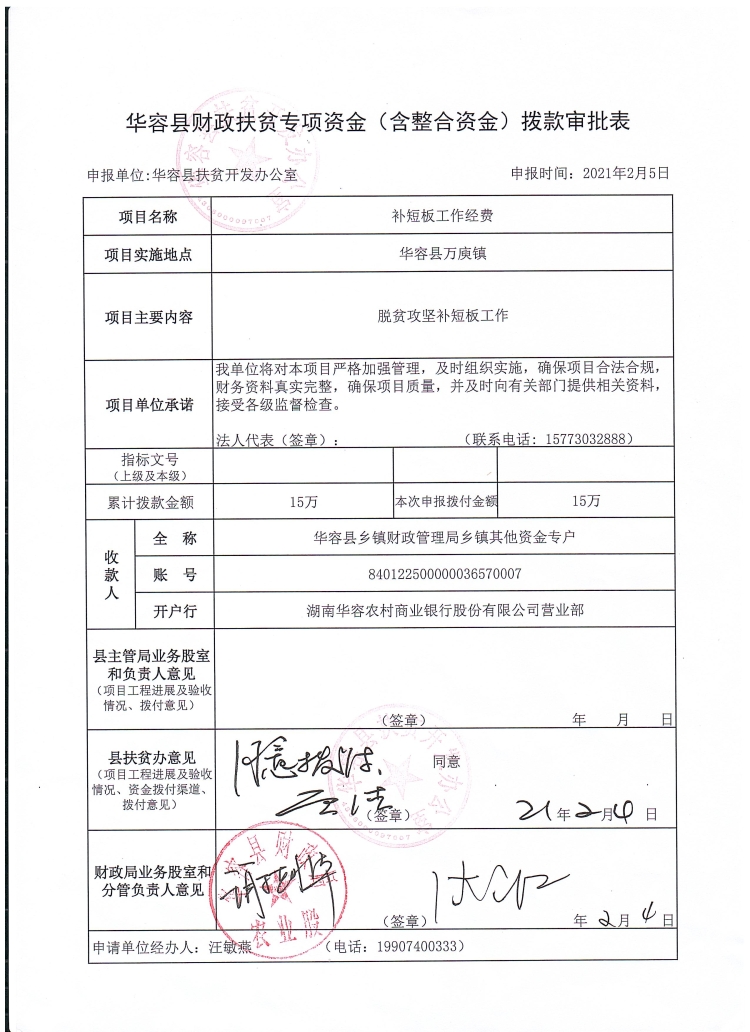 华容县财政扶贫专项资金（含整合资金）拨款审批表
申报单位:华容县扶贫开发办公室 申报时间: 2021年2月5日
项目名称 补短板工作经费
项目实施地点 华容县万庾镇
项目主要内容 脱贫攻坚补短板工作
项目单位承诺
我单位将对本项目严格加强管理，及时组织实施，确保项目合法合规，
财务资料真实完整，确保项目质量，并及时向有关部门提供相关资料，
接受各级监督检查。
法人代表（签章）： （联系电话: 15773032888）
指标文号
（上级及本级）
累计拨款金额 15万 本次申报拨付金额 15万
收款人
全 称 华容县乡镇财政管理局乡镇其他资金专户
账 号 840122500000036570007
开户行 湖南华容农村商业银行股份有限公司营业部
县主管局业务股室
和负责人意见
（项目工程进展及验收
情况、拨付意见）
（签章） 年 月 日
县扶贫办意见
（项目工程进展及验收
情况、资金拨付渠道、
拨付意见）
同意
（签章） 21年2月4日
财政局业务股室和
分管负责人意见
农业股
（签章） 年2月4日
申请单位经办人: 汪敏燕 （电话: 19907400333）